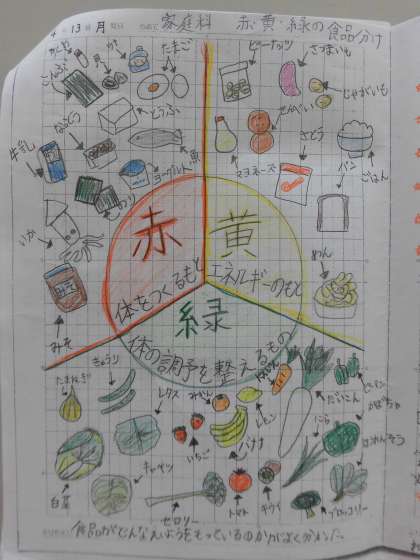 13日 月
家庭科 赤・黄・緑の食品分け
たまご
こんぶ
とうふ
なっとう
魚
牛乳
ヨーグルト
いか
みそ
ピーナッツ
さつまいも
じゃがいも
せんべい
マヨネーズ
さとう
ごはん
パン
めん
赤
体をつくるもと
黄
エネルギーのもと
緑
体の調子を整えるもの
きゅうり
たまねぎ
レタス
みかん
にんじん
だいこん
ピーマン
かぼちゃ
レモン
バナナ
いちご
にら
ほうれんそう
白菜
キャベツ
セロリー
トマト
キウイ
ブロッコリー
食品がどんなえいようをもっているのかがよく分かった。